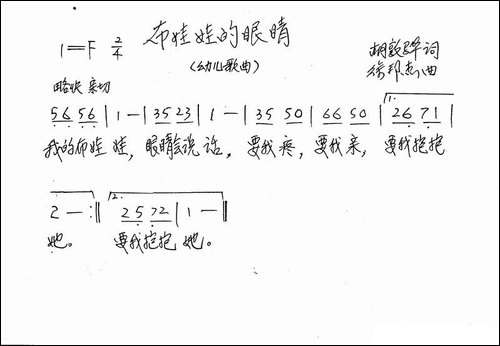 布娃娃的眼睛
1=F 2/4
(幼儿歌曲)
词
徐邦杰曲
略快 亲切
56 56 | 1 - | 35 23 | 1 - | 35 50 | 66 50 | 1. 26 71 |
我的布娃娃，眼睛会说话，要我疼，要我亲，要我抱抱
2 - :‖ 2. 25 72 | 1 - ‖
她。 要我抱抱她。